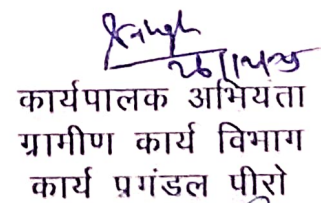 कार्यपालक अभियता
ग्रामीण कार्य विभाग
कार्य प्रगंडल पीरो